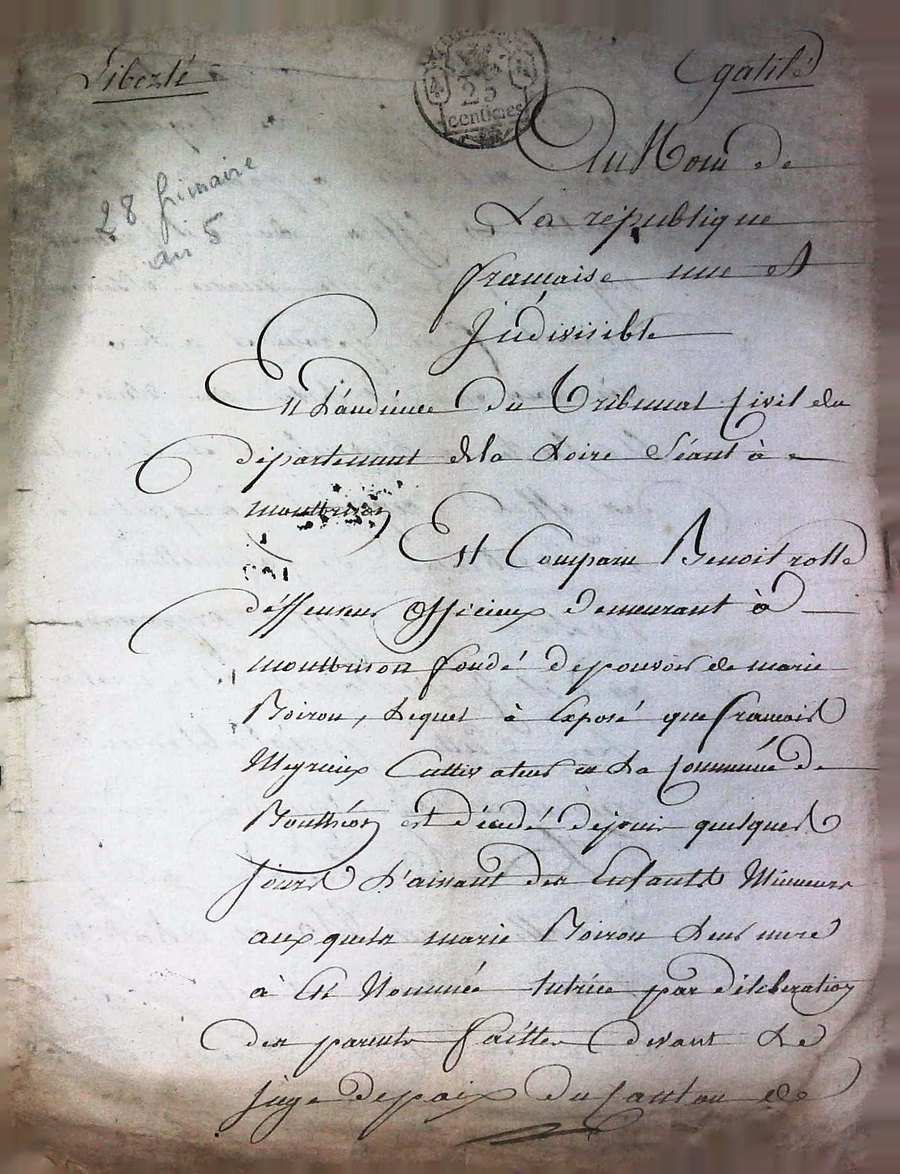 Liberté
Egatilé
25
centimes
28 frimaire
an 5
Au Nom de
La république
francaise une et
Indivisible
En L'audience du Tribunal Civil du
département de la Loire Séant à
montbrison
Est Comparu Benoit rolle
déffenseur Officieux demeurant à
montbrison fondé de pouvoir de marie
Boiron, Lequel à Exposé que francois
Meyrieux Cultivateur en La Commune de
Bouthéon est décédé depuis quelques
jours Laissant des Enfants Mineurs
auxquels marie Boiron Leur mere
à Eté Nommée tutrice par déliberation
des parents faitte devant Le
juge de paix du Canton de